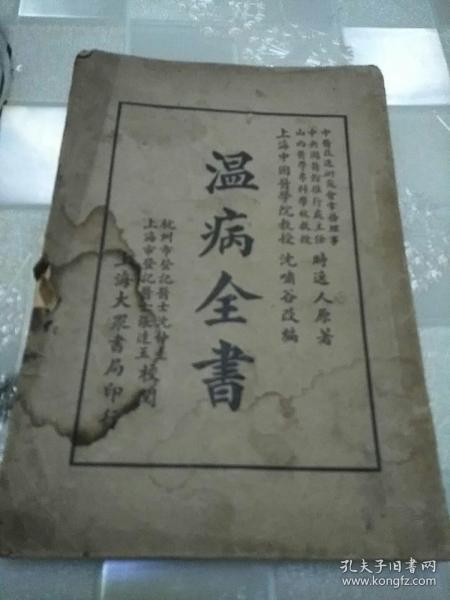 中醫改進研究會常務理事
中央國醫館推行處主任
山西醫學專科學校教授
時逸人原著
上海中國醫學院教授 沈嘯谷改編
溫病全書
杭州市登記醫士沈
上海市登記醫士張達玉
校閱
上海大眾書局印行
孔夫子旧书网
www.kongfz.com